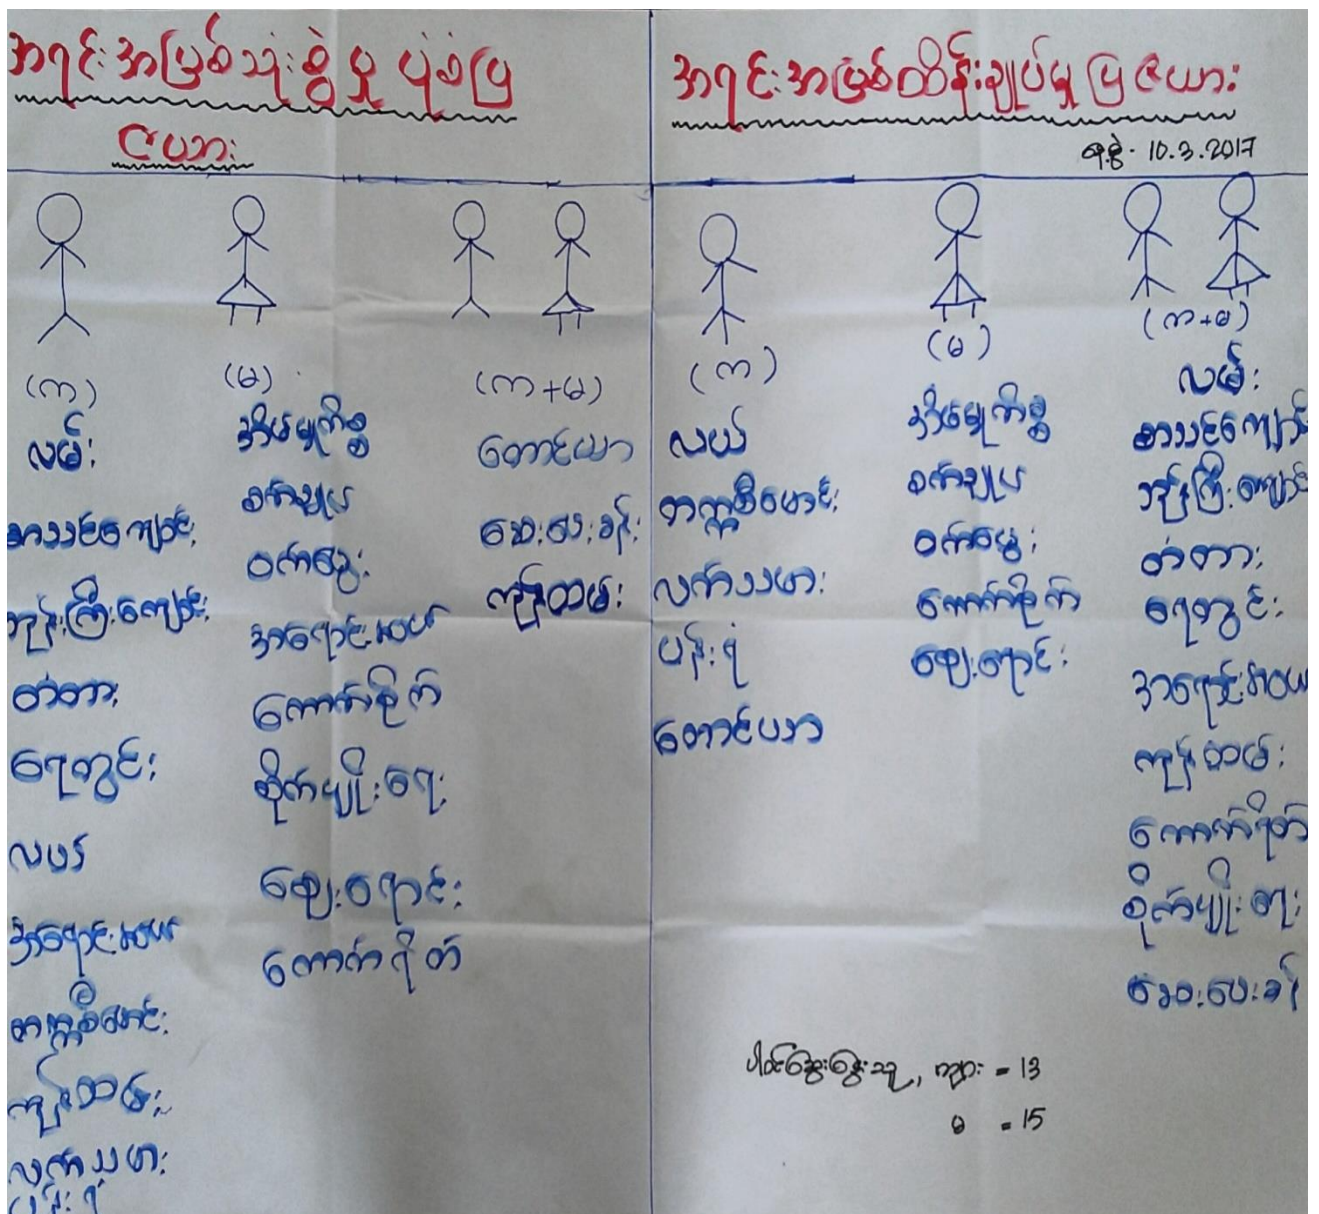 အရင်းအမြစ်သုံးစွဲမှု ပုံစံပြ
ဇယား
(က)
လမ်း
စာသင်ကျောင်း
ဘုန်းကြီးကျောင်း
တံတား
ရေတွင်း
လယ်
အရောင်းအဝယ်
တက္ကစီမောင်း
ကျန်းထမ်း
လက်သမား
ပန်းရံ
(မ)
အိမ်မှုကိစ္စ
စက်ချုပ်
ဝက်မွေး
အရောင်းအဝယ်
ကောက်စိုက်
စိုက်ပျိုးရေး
ဈေးရောင်း
ကောက်ရိတ်
(က+မ)
တောင်ယာ
ဆေးပေးခန်း
ကျန်းထမ်း
အရင်းအမြစ်ထိန်းချုပ်မှု ပြဇယား
ရက်စွဲ - 10.3.2017
(က)
လယ်
တက္ကစီမောင်း
လက်သမား
ပန်းရံ
တောင်ယာ
(မ)
အိမ်မှုကိစ္စ
စက်ချုပ်
ဝက်မွေး
ကောက်စိုက်
ဈေးရောင်း
(က+မ)
လမ်း
စာသင်ကျောင်း
ဘုန်းကြီးကျောင်း
တံတား
ရေတွင်း
အရောင်းအဝယ်
ကျန်းထမ်း
ကောက်ရိတ်
စိုက်ပျိုးရေး
ဆေးပေးခန်း
ပါဝင်ဆွေးနွေးသူ, ကျား = 13
မ = 15